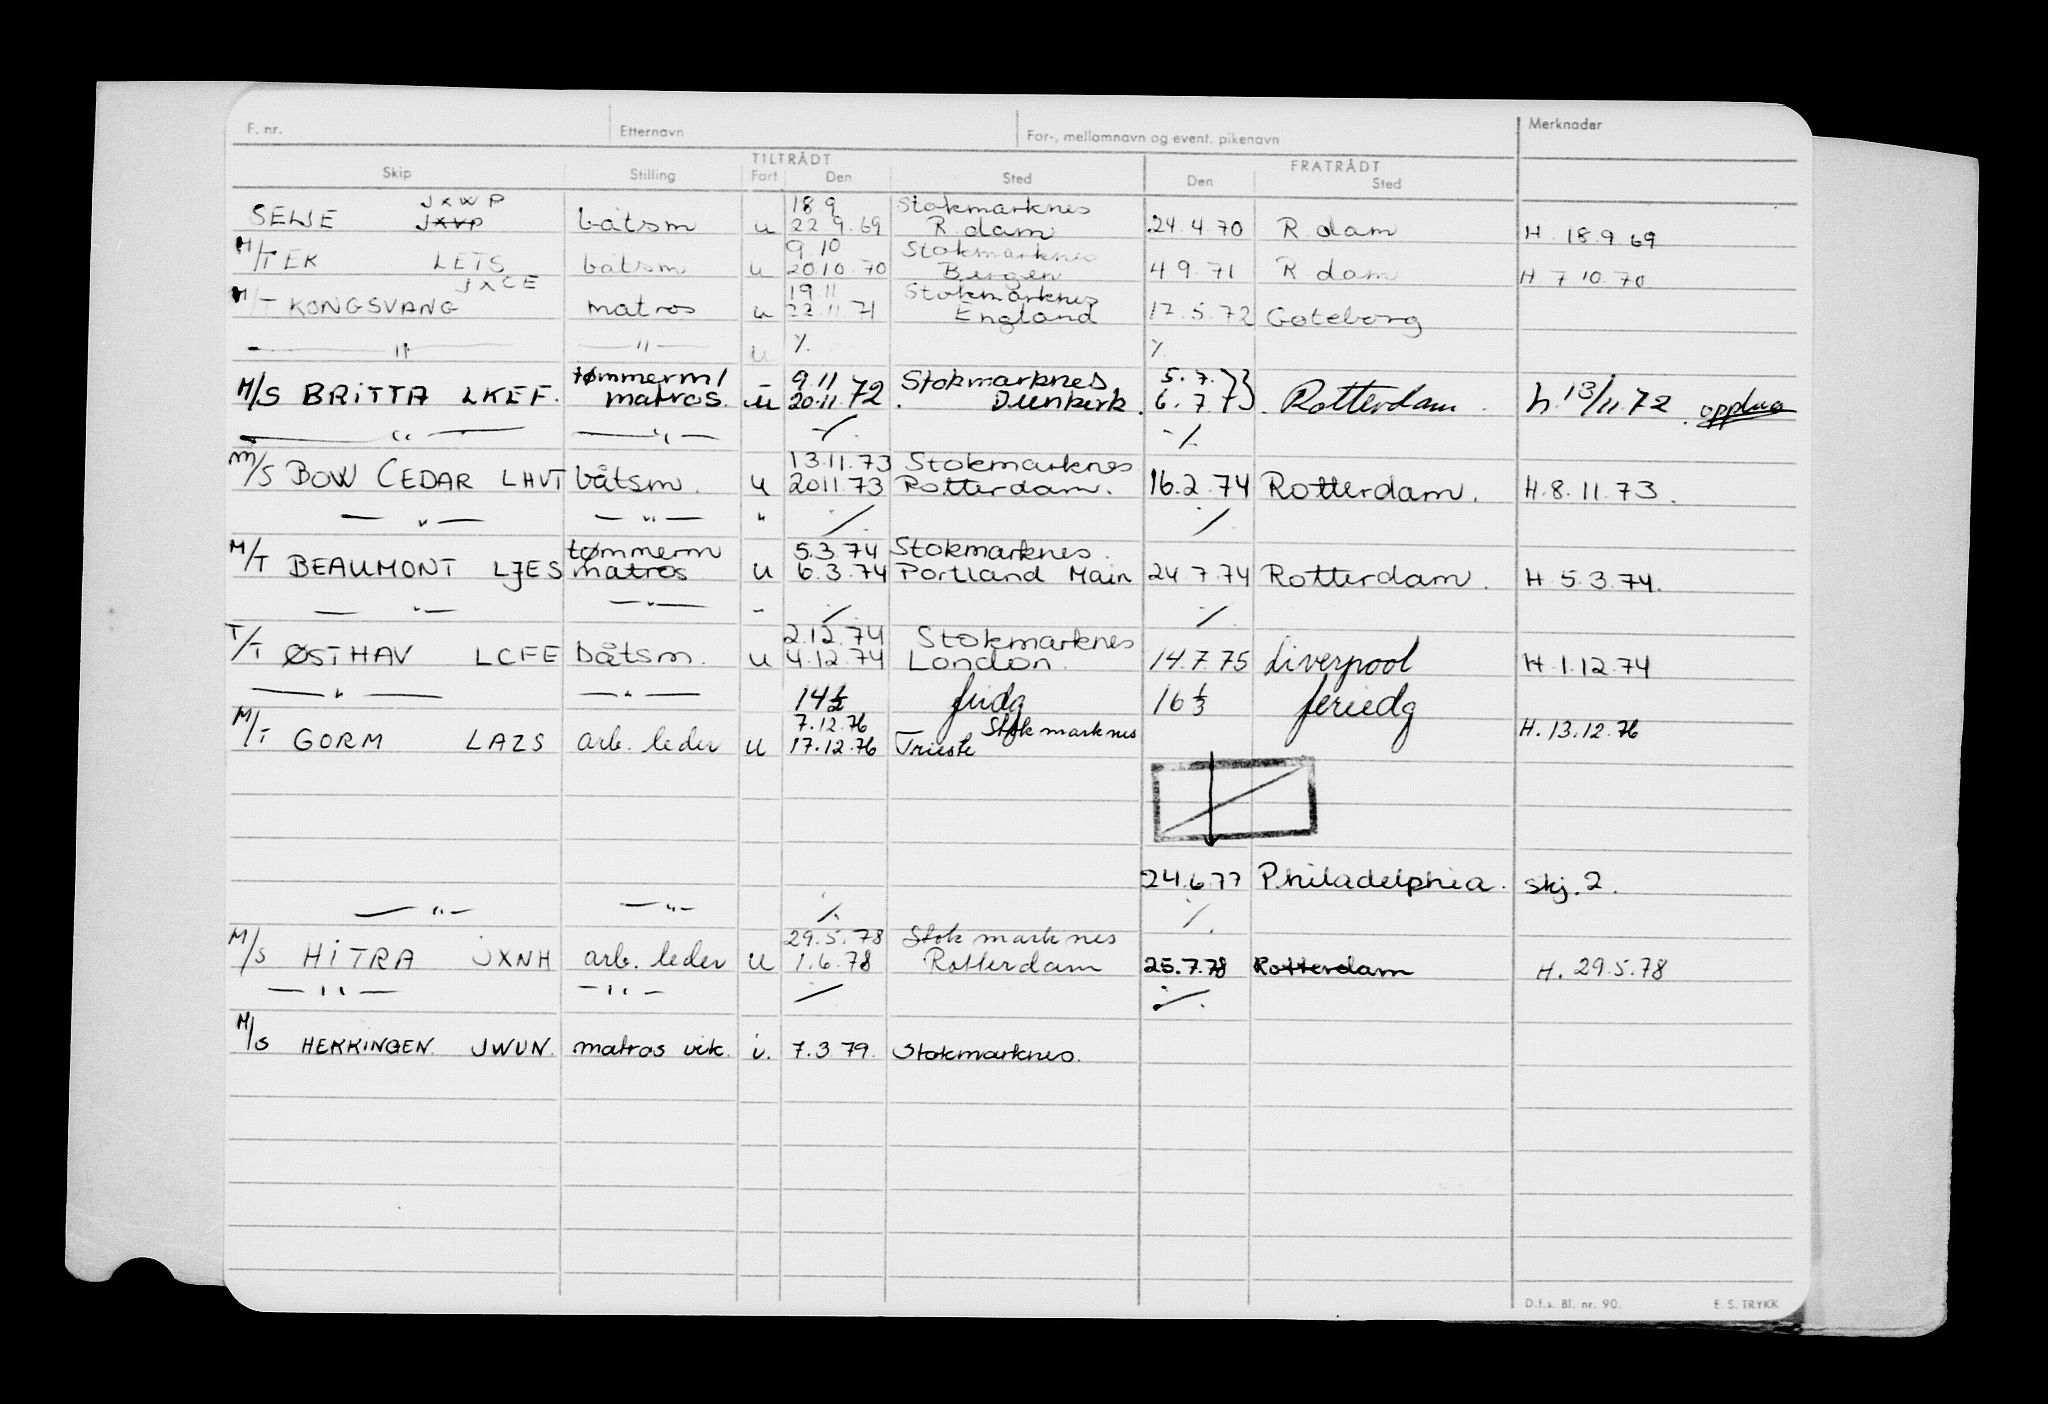 F. nr. Etternavn For-, mellomnavn og event. pikenavn Merknader
TILTRÅDT FRATRÅDT
Skip Stilling Fart Den Sted Den Sted
JXWP 18 9 Stokmarknes
SELJE JXVP båtsm u 22.9.69 R.dam 24.4.70 R.dam H. 18.9 69
9 10 Stokmarknes
M/T EK LETS båtsm u 20.10.70 Bergen 4 9.71 R.dam H 7 10.70
JXCE 19.11 Stokmarknes
M/T KONGSVANG matros u 22.11.71 England 17.5.72 Gøteborg
— " — — " — u ⁒ ⁒
tømmerm/ 9.11 Stokmarknes 5.7.
M/S BRITTA LKEF. matros. u 20.11 72 Dunkirk. 6.7 73. Rotterdam. h. 13/11.72
— " — — " — ⁒ ⁒
13.11.73 Stokmarknes
M/S BOW CEDAR LHVT båtsm. u 20 11.73 Rotterdam. 16.2.74 Rotterdam. H.8.11.73.
— " — — " — " ⁒ ⁒
tømmerm 5.3.74 Stokmarknes.
M/T BEAUMONT LJES matros u 6.3.74 Portland Main 24.7.74 Rotterdam. H.5.3.74.
— " — — " — - ⁒ ⁒
2.12.74 Stokmarknes
T/T ØSTHAV LCFE båtsm. u 4.12.74 London. 14.7.75 Liverpool H.1.12.74
— " — — " — 14½ 16⅓ feriedg
7.12.76 Stokmarknes H.13.12.76
M/T GORM LAZS arb. leder u 17.12.76 Trieste
24.6.77 Philadelphia. skj.2.
— " — — " — ⁒ ⁒
29.5.78 Stokmarknes
M/S HITRA JXNH arb. leder u 1.6.78 Rotterdam 25.7.78 Rotterdam H. 29.5.78
— " — — " — ⁒ ⁒
M/S HEKKINGEN. JWUN. matros vik. i. 7.3 79. Stokmarknes.
D.f.s. Bl. nr. 90. E. S. TRYKK